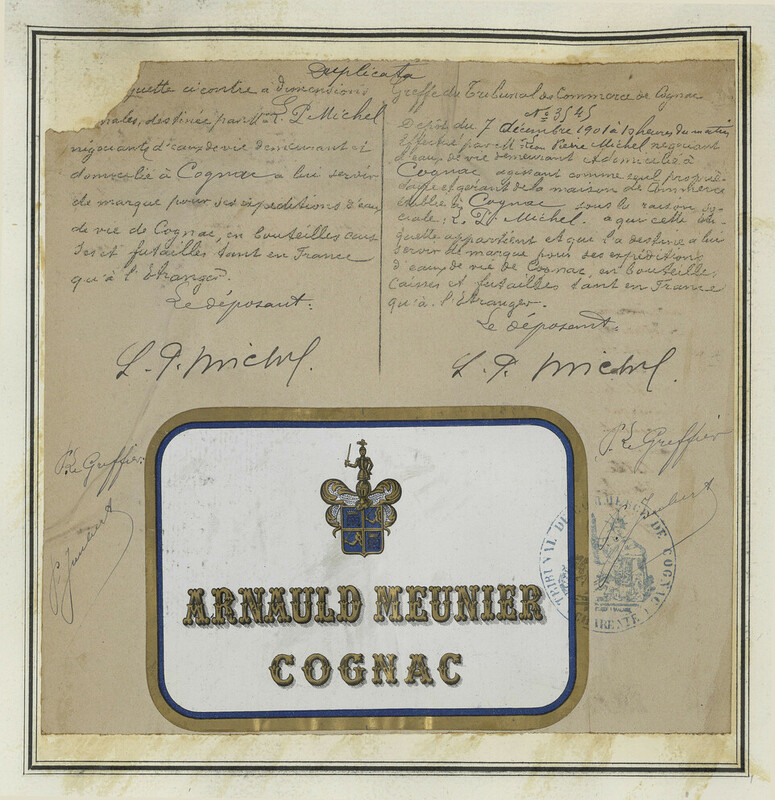 Duplicata
quette ci contre a dimensions
nales, destinée par Mr L. P. Michel
négociant d'eau de vie demeurant et
domicilié à Cognac a lui servir
de marque pour ses expeditions d'eau
de vie de Cognac, en bouteilles caus
Ses et futailles tant en France
qu'à l'Etranger.
Le déposant:
L. P. Michel.
Greffe du Tribunal de Commerce de Cognac
No 3545
Dépôt du 7 décembre 1901 à 10 heures du matin
Effectué par M. Pierre Michel négociant
d'eau de vie demeurant domicilié à
Cognac agissant comme seul proprié-
taire et gérant de la maison de Commerce
établie à Cognac sous la raison so-
ciale: L. P. Michel. a qui cette éti-
quette appartient et qui l'a destine a lui
servir de marque pour ses expéditions
d'eau de vie de Cognac, en bouteilles,
caisses et futailles tant en France
qu'à l'Etranger.
Le déposant:
L. P. Michel.
P. Le Greffier:
P. Joubert
P. Le Greffier
P. Joubert
ARNAULD MEUNIER
COGNAC
TRIBUNAL DE COMMERCE DE COGNAC
CHARENTE